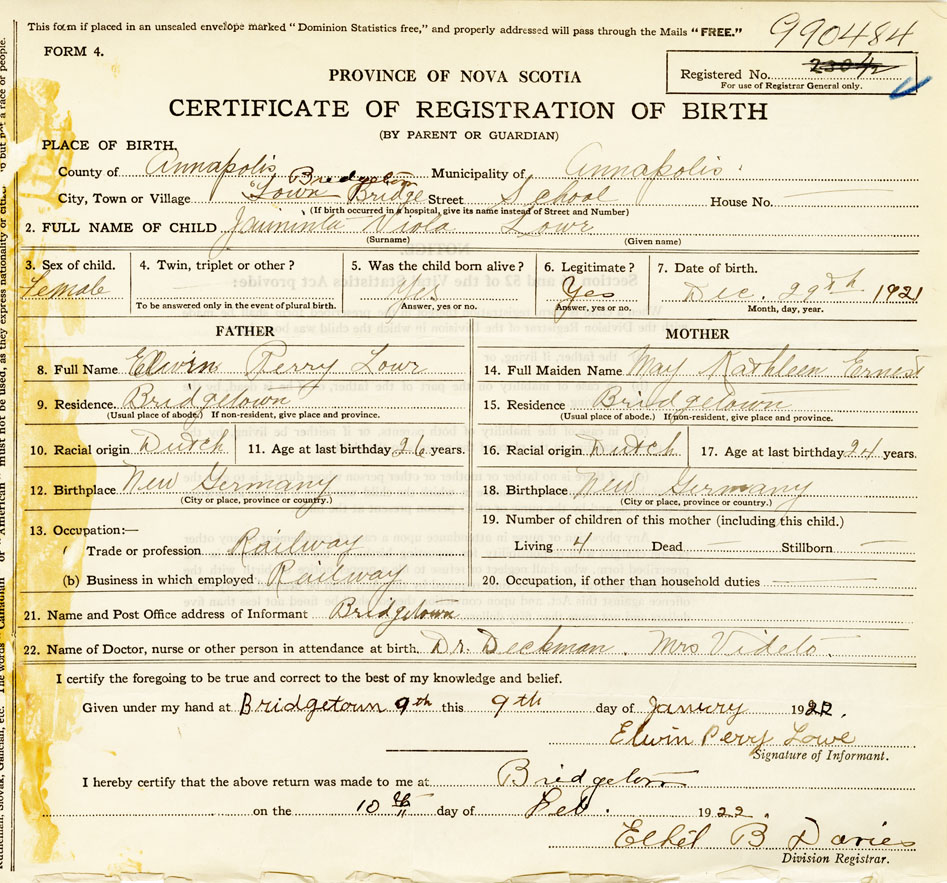 This form if placed in an unsealed envelope marked "Dominion Statistics free," and properly addressed will pass through the Mails "FREE."
990484
FORM 4.
Registered No.
For use of Registrar General only.
PROVINCE OF NOVA SCOTIA
CERTIFICATE OF REGISTRATION OF BIRTH
(BY PARENT OR GUARDIAN)
PLACE OF BIRTH.
County of Annapolis Municipality of Annapolis
Bridgetown
City, Town or Village Town Bridge Street School House No.
(If birth occurred in a hospital, give its name instead of Street and Number)
2. FULL NAME OF CHILD Viola Lowe
(Surname) (Given name)
3. Sex of child. 4. Twin, triplet or other? 5. Was the child born alive? 6. Legitimate? 7. Date of birth.
Female Yes Yes Dec. 29th 1921
To be answered only in the event of plural birth. Answer, yes or no. Answer, yes or no. Month, day, year.
FATHER MOTHER
8. Full Name Elwin Perry Lowe 14. Full Maiden Name May Kathleen Ernest
9. Residence. Bridgetown 15. Residence Bridgetown
(Usual place of abode.) If non-resident, give place and province. (Usual place of abode.) If non-resident, give place and province.
10. Racial origin Dutch 11. Age at last birthday 26 years. 16. Racial origin Dutch 17. Age at last birthday 24 years.
12. Birthplace New Germany 18. Birthplace New Germany
(City or place, province or country.) (City or place, province or country.)
13. Occupation:— 19. Number of children of this mother (including this child.)
Trade or profession Railway Living 4 Dead — Stillborn —
(b) Business in which employed Railway 20. Occupation, if other than household duties
21. Name and Post Office address of Informant Bridgetown
22. Name of Doctor, nurse or other person in attendance at birth. Dr. Deckman. Mrs Videto.
I certify the foregoing to be true and correct to the best of my knowledge and belief.
Given under my hand at Bridgetown 9th this 9th day of Janury 1922.
Elwin Perry Lowe
Signature of Informant.
I hereby certify that the above return was made to me at Bridgetown
on the 10 day of Feb. 1922.
Ethel B Davies
Division Registrar.